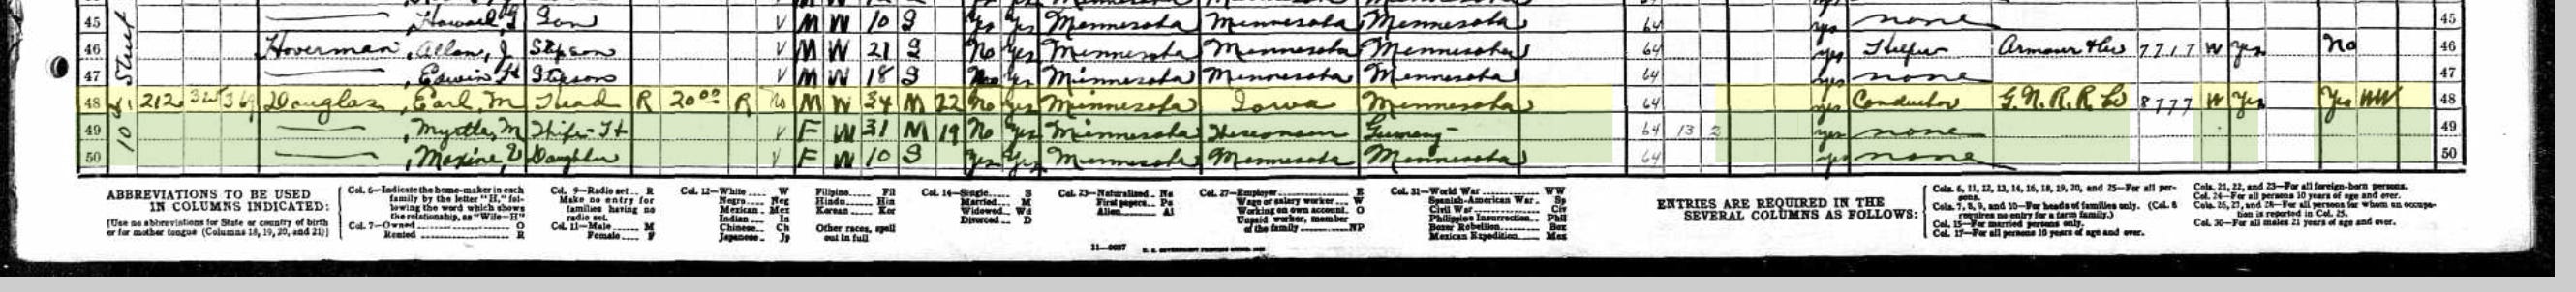 45 Howard Son V M W 10 S Yes Yes Minnesota Minnesota Minnesota 64 yes none 45
46 Hoverman, Allan, J Stepson V M W 21 S No Yes Minnesota Minnesota Minnesota 64 yes Helper Armour & Co 7717 W Yes No 46
47 Edwin H Stepson V M W 18 S No Yes Minnesota Minnesota Minnesota 64 yes none 47
48 212 Douglas, Earl, M Head R 20 00 R No M W 34 M 22 No Yes Minnesota Iowa Minnesota 64 yes Conductor G. N. R. R. Co 8777 W Yes Yes WW 48
49 , Myrtle, M Wife-H V F W 31 M 19 No Yes Minnesota Wisconsin Germany 64 13 2 yes none 49
50 , Maxine, V Daughter V F W 10 S Yes Yes Minnesota Minnesota Minnesota 64 yes none 50
10 Street
ABBREVIATIONS TO BE USED
IN COLUMNS INDICATED:
[Use no abbreviations for State or country of birth
or for mother tongue (Columns 18, 19, 20, and 21)]
Col. 6—Indicate the home-maker in each
family by the letter "H," fol-
lowing the word which shows
the relationship, as "Wife—H"
Col. 7—Owned O
Rented R
Col. 9—Radio set R
Make no entry for
families having no
radio set.
Col. 11—Male M
Female F
Col. 12—White W
Negro Neg
Mexican Mex
Indian In
Chinese Ch
Japanese Jp
Filipino Fil
Hindu Hin
Korean Kor
Other races, spell
out in full
Col. 14—Single S
Married M
Widowed Wd
Divorced D
Col. 23—Naturalized Na
First papers Pa
Alien Al
Col. 27—Employer E
Wage or salary worker W
Working on own account O
Unpaid worker, member
of the family NP
Col. 31—World War WW
Spanish-American War Sp
Civil War Civ
Philippine Insurrection Phil
Boxer Rebellion Box
Mexican Expedition Mex
ENTRIES ARE REQUIRED IN THE
SEVERAL COLUMNS AS FOLLOWS:
Cols. 6, 11, 12, 13, 14, 16, 18, 19, 20, and 25—For all per-
sons.
Cols. 7, 8, 9, and 10—For heads of families only. (Col. 8
requires no entry for a farm family.)
Col. 15—For married persons only.
Col. 17—For all persons 10 years of age and over.
Cols. 21, 22, and 23—For all foreign-born persons.
Col. 24—For all persons 10 years of age and over.
Cols. 26, 27, and 28—For all persons for whom an occupa-
tion is reported in Col. 25.
Col. 30—For all males 21 years of age and over.
U. S. GOVERNMENT PRINTING OFFICE